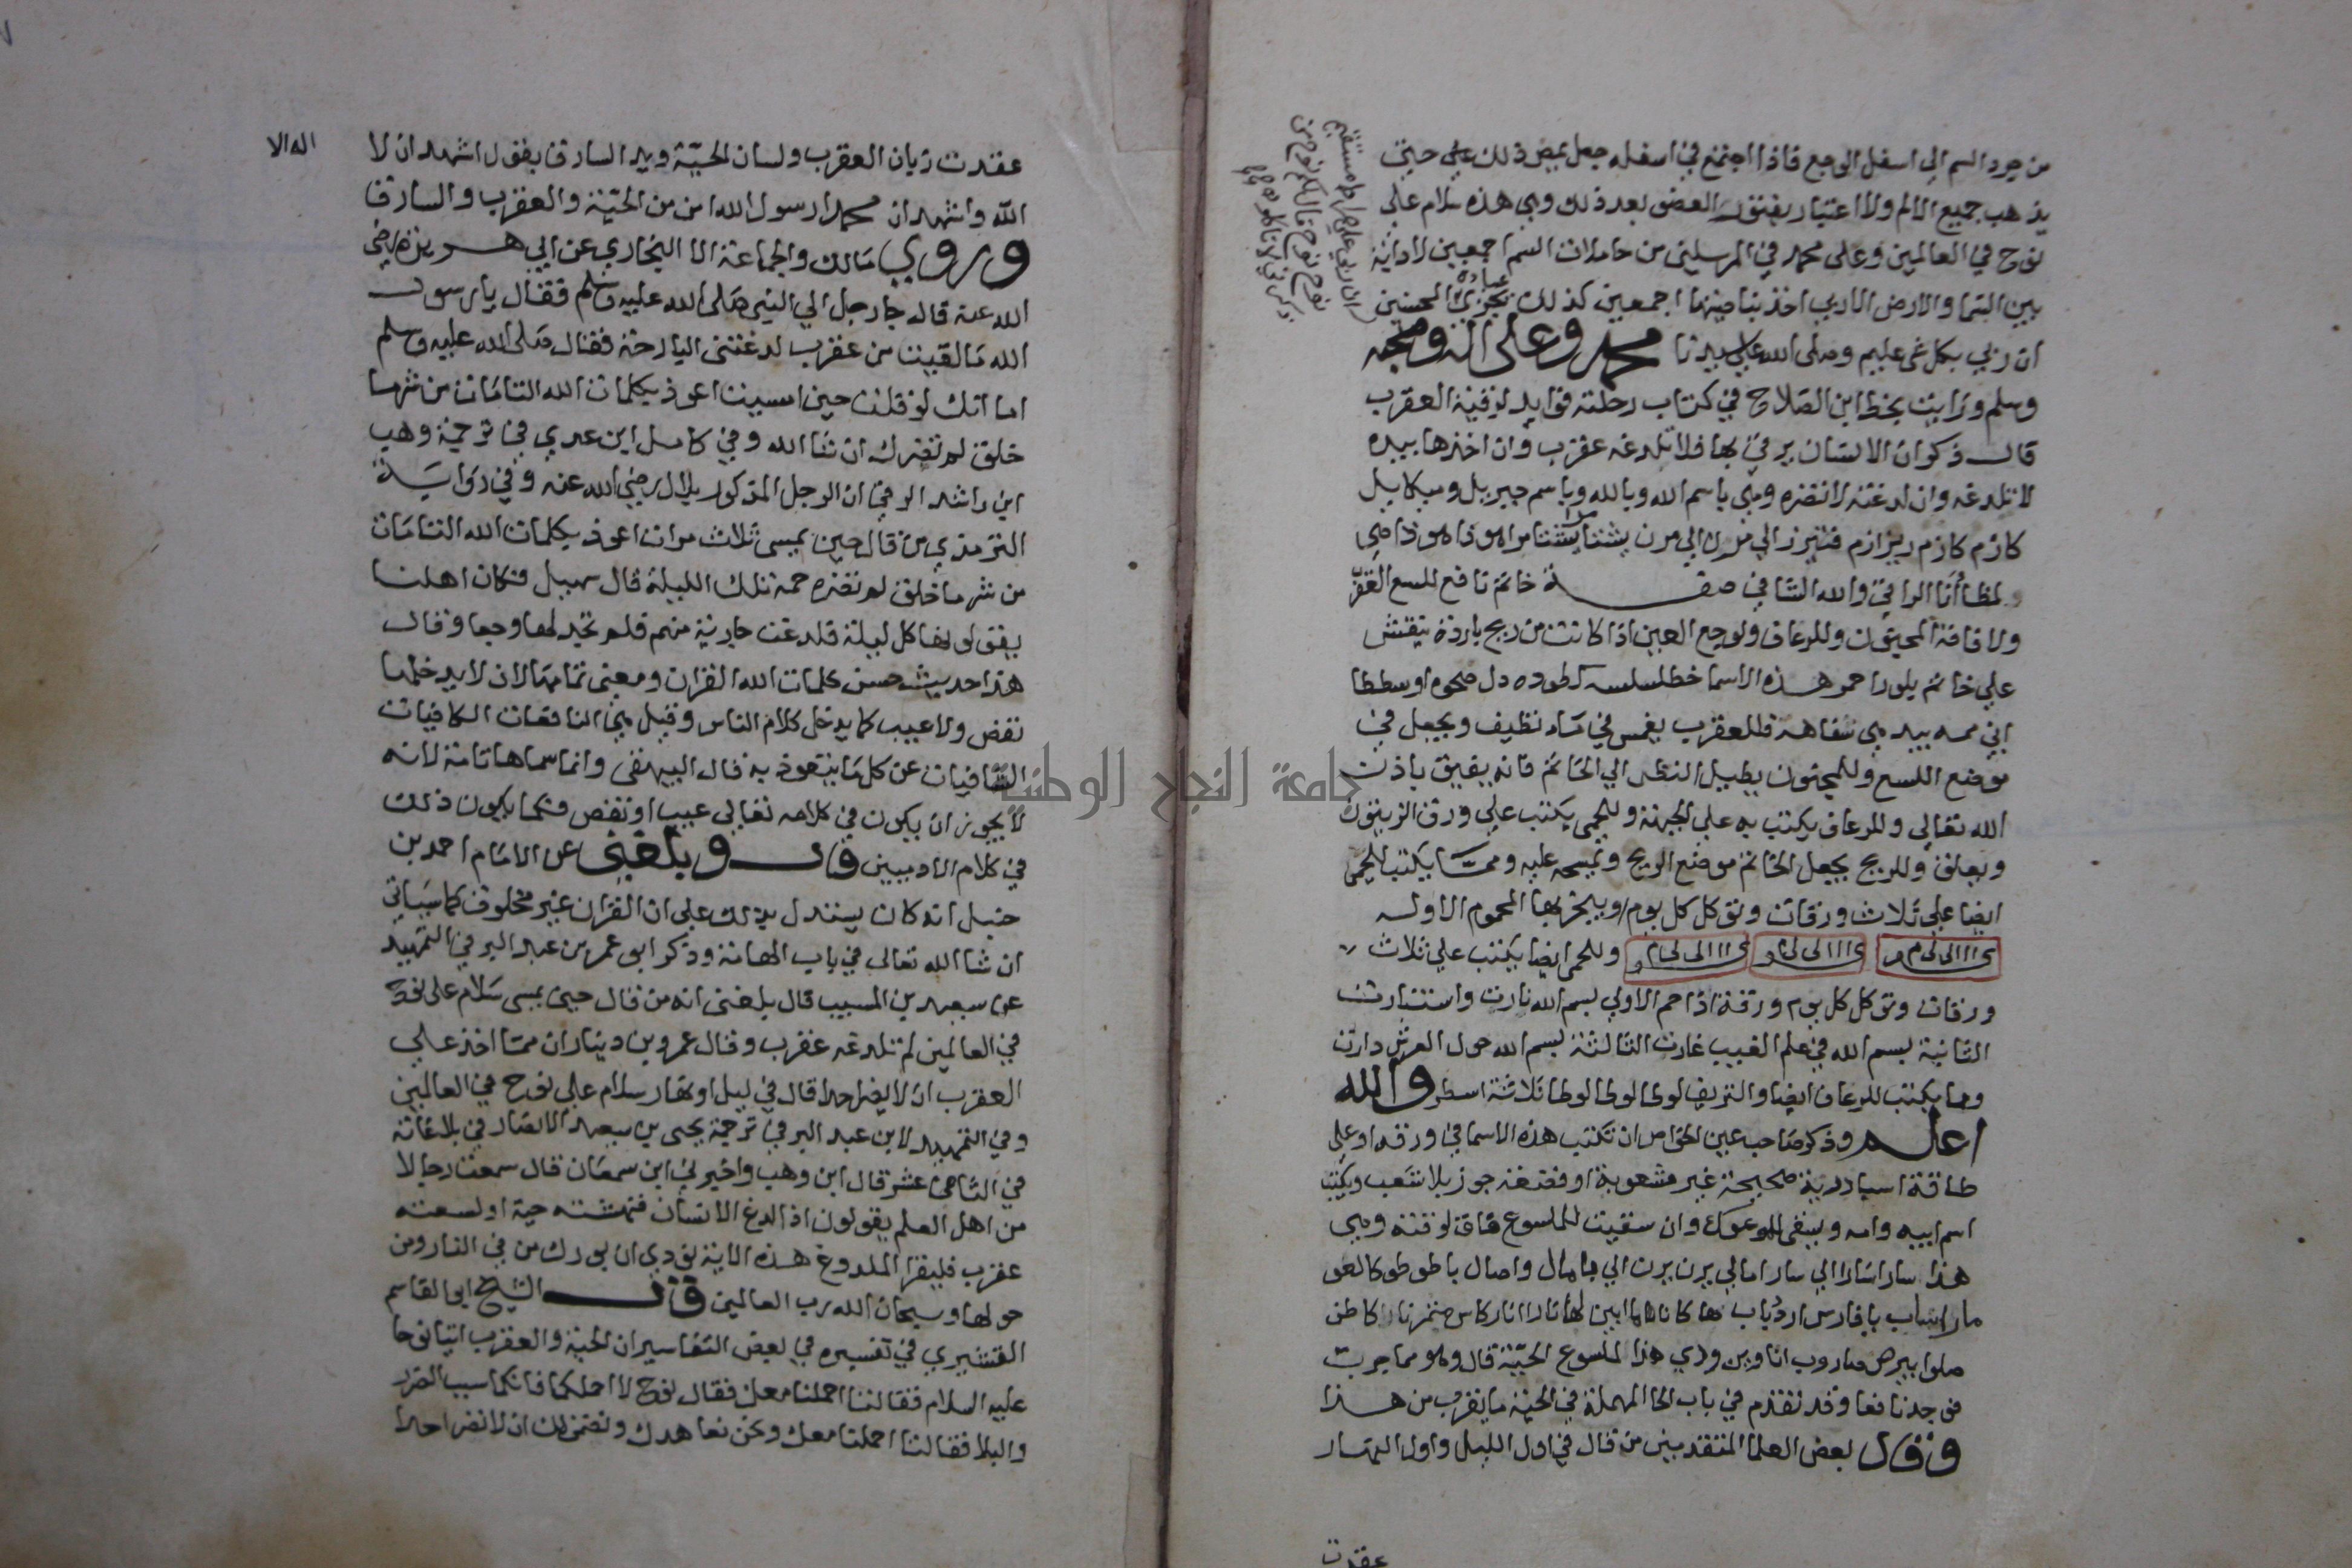 من جرد السم الى اسفل الوجع فاذا اجتمع في اسفله جعل يمص ذلك على حتى
يذهب جميع الالم ولا اعتبار بفتور العضو بعد ذلك وهي هذه سلام على
نوح في العالمين وعلى محمد في المرسلين من حاملات السم اجمعين لا دابة
بين السما والارض الا ربي اخذ بناصيتها اجمعين كذلك نجزي عباده المحسنين
ان ربي على صراط مستقيم
نوح نوح قال لكم نوح من
ذكرني لا تلدغوه
ان ربي بكل شي عليم وصلى الله على سيدنا محمد وعلى اله وصحبه
وسلم ورايت بخط ابن الصلاح في كتاب رحلته فوايد لرقية العقرب
قال ذكر ان الانسان يرقى بها فلا تلدغه عقرب وان اخذها بيده
لا تلدغه وان لدغته لا تضره وهي باسم الله وبالله وباسم جبريل وميكاييل
كازم كازم ويزازم فتيزر الى مرن الى مرن يشتامرا يشتامرا هوذا هوذا هي
لمظا أنا الراقي والله الشافي صفة خاتم نافع للسع العقرب
ولافاقة المجنون وللرعاف ولوجع العين اذا كانت من ريح باردة ينقش
على خاتم بلور احمر هذه الاسما خطلسلسه كطوده دل صحوه اوسططا
ابي ممه بيد هي سفاهة فللعقرب يغمس في ماء نظيف ويجعل في
موضع اللسع وللمجنون يطيل النظر الى الخاتم فانه يفيق باذن
الله تعالى وللرعاف يكتب به على الجبهة وللحمى يكتب على ورق الزيتون
ويعلق وللريح يجعل الخاتم موضع الريح ويمسحه عليه ومما يكتب للحمى
ايضا على ثلاث ورقات وتوكل كل يوم ويبخر بها المحموم الاوله
وللحمى ايضا يكتب على ثلاث
ورقات وتوكل كل يوم ورقة اذا حم الاولى بسم الله نارت واستنارت
الثانية بسم الله في علم الغيب غارت الثالثة بسم الله حول العرش دارت
ومما يكتب للرعاف ايضا والنزيف لوطا لوطا لوطا ثلاثة اسطر والله
اعلم وذكر صاحب عين الخواص ان تكتب هذه الاسما في ورقه او على
طاقة اسبادرية صحيحة غير مشعوبة او قصعة جوز بلا شعب ويكتب
اسم ابيه وامه ويسقى الموعوك وان سقيت للملسوع فاق لوقته وهي
هذا سارا سارا الي سارا مالي يرن يرن الي بامال واصال باطوطو كالعو
ماراساب يا فارس ارد باب هاكانا ماابين لها نارا اناركاس متمرنارا كاطن
صلوا بيرص صاروب اناوين ودي هذا للملسوع الحية قال وهو مما جرب
فوجد نافعا وقد تقدم في باب الحا المهملة في الحية ما يقرب من هذا
وقال بعض العلما المتقدمين من قال في اول الليل واول النهار
عقدت
عقدت زبان العقرب ولسان الحية ويد السارق بقول اشهد ان لا
اله الا
الله واشهد ان محمدا رسول الله امن من الحية والعقرب والسارق
وروي مالك والجماعة الا البخاري عن ابي هريرة رضي
الله عنه قال جا رجل الى النبي صلى الله عليه وسلم فقال يا رسول
الله ما لقيت من عقرب لدغتني البارحة فقال صلى الله عليه وسلم
اما انك لو قلت حين امسيت اعوذ بكلمات الله التامات من شر ما
خلق لم تضرك ان شا الله وفي كامل ابن عدي في ترجمة وهب
ابن راشد الرقي ان الرجل المذكور بلال رضي الله عنه وفي رواية
الترمذي من قال حين يمسي ثلاث مرات اعوذ بكلمات الله التامات
من شر ما خلق لم تضره حمة تلك الليلة قال سهيل فكان اهلنا
يقولونها كل ليلة فلدغت جارية منهم فلم تجد لها وجعا وقال
هذا حديث حسن كلمات الله القران ومعنى تمامها ان لا يدخلها
نقص ولا عيب كما يدخل كلام الناس وقيل هي النافعات الكافيات
الشافيات عن كل ما يتعوذ به قال البيهقي وانما سماها تامة لانه
لا يجوز ان يكون في كلامه تعالى عيب او نقص كما يكون ذلك
في كلام الادميين قال وبلغني عن الامام احمد بن
حنبل انه كان يستدل بذلك على ان القران غير مخلوق كما سياتي
ان شا الله تعالى في باب الهامة وذكر ابو عمر بن عبد البر في التمهيد
عن سعيد بن المسيب قال بلغني انه من قال حين يمسي سلام على نوح
في العالمين لم تلدغه عقرب وقال عمرو بن دينار ان مما اخذ على
العقرب ان لا يضر احدا قال في ليل او نهار سلام على نوح في العالمين
وفي التمهيد لابن عبد البر في ترجمة يحيى بن سعيد الانصار في بلاغاته
في الثامن عشر قال ابن وهب واخبرني ابن سمعان قال سمعت رجالا
من اهل العلم يقولون اذا لدغ الانسان فنهشته حية او لسعته
عقرب فليقرا الملدوغ هذه الاية نودي ان بورك من في النار ومن
حولها وسبحان الله رب العالمين قال الشيخ ابو القاسم
القشيري في تفسيره في بعض التفاسير ان الحية والعقرب اتيا نوحا
عليه السلام فقالتا احملنا معك فقال نوح لا احملكما فانكما سبب الضرر
والبلا فقالتا احملنا معك ونحن نعاهدك ونضمن لك ان لا نضر احدا
جامعة النجاح الوطنية